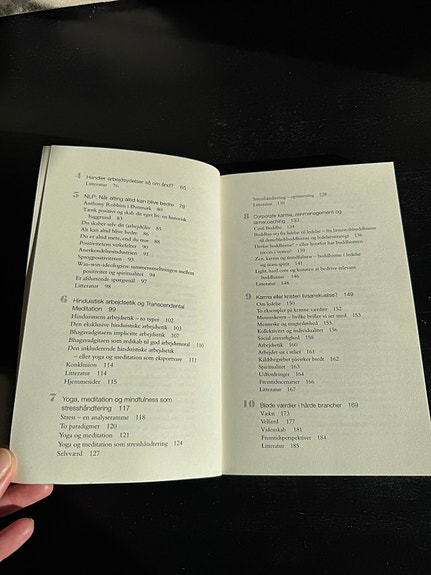 4 Handler arbejdsydelse så om ånd? 65
Litteratur 76
5 NLP: Når alting altid kan blive bedre 79
Anthony Robbins i Danmark 80
Tænk positivt og skab dit eget liv: en historisk
baggrund 83
Du skaber selv dit (arbejds)liv 85
Alt kan altid blive bedre 86
Du er altid mere, end du tror 88
Positivitetens virkefelter 90
Anerkendelsesindustrien 91
Sprogpositivisten 93
Win-win-ideologien: sammensmeltningen mellem
positivitet og spiritualitet 94
Et afsluttende spørgsmål 97
Litteratur 98
6 Hinduistisk arbejdsetik og Transcendental
Meditation 99
Hinduismens arbejdsetik – to typer 102
Den eksklusive hinduistiske arbejdsetik 103
Bhagavadgitaens implicitte arbejdsetik 107
Bhagavadgitaen som redskab til god arbejdsmoral 110
Den inkluderende hinduistiske arbejdsetik
– eller yoga og meditation som eksportvare 111
Konklusion 114
Litteratur 114
Hjemmesider 115
7 Yoga, meditation og mindfulness som
stresshåndtering 117
Stress – en analyseramme 118
To paradigmer 120
Yoga og meditation 121
Yoga og meditation som stresshåndtering 124
Selvværd 127
Stresshåndtering – opsummering 128
Litteratur 130
8 Corporate karma, zenmanagement og
lamacoaching 133
Cool Buddha 134
Buddhas vej fra ledelse til ledelse – fra
til 136
Derfor buddhisme? – eller hvorfor har buddhismen
succes i vesten? 139
Zen, karma og mindfulness – buddhisme i ledelse
og team spirit 141
Light, hard core og kunsten at bedrive relevant
buddhisme 146
Litteratur 148
9 Karma eller kristen livsanskuelse? 149
Om ledelse 150
To eksempler på kristne værdier 152
Menneskesyn – hvilke briller vi ser med 153
Menneske og magtesløshed 155
Kollektivitet og individualitet 156
Social ansvarlighed 158
Arbejdsetik 160
Arbejdet sat i relief 161
Kaldsbegrebet påvirker bredt 162
Spiritualitet 163
Udfordringer 164
Fremtidsscenarier 166
Litteratur 167
10 Bløde værdier i hårde brancher 169
Vækst 173
Velfærd 177
Videnskab 181
Fremtidsperspektiver 184
Litteratur 185